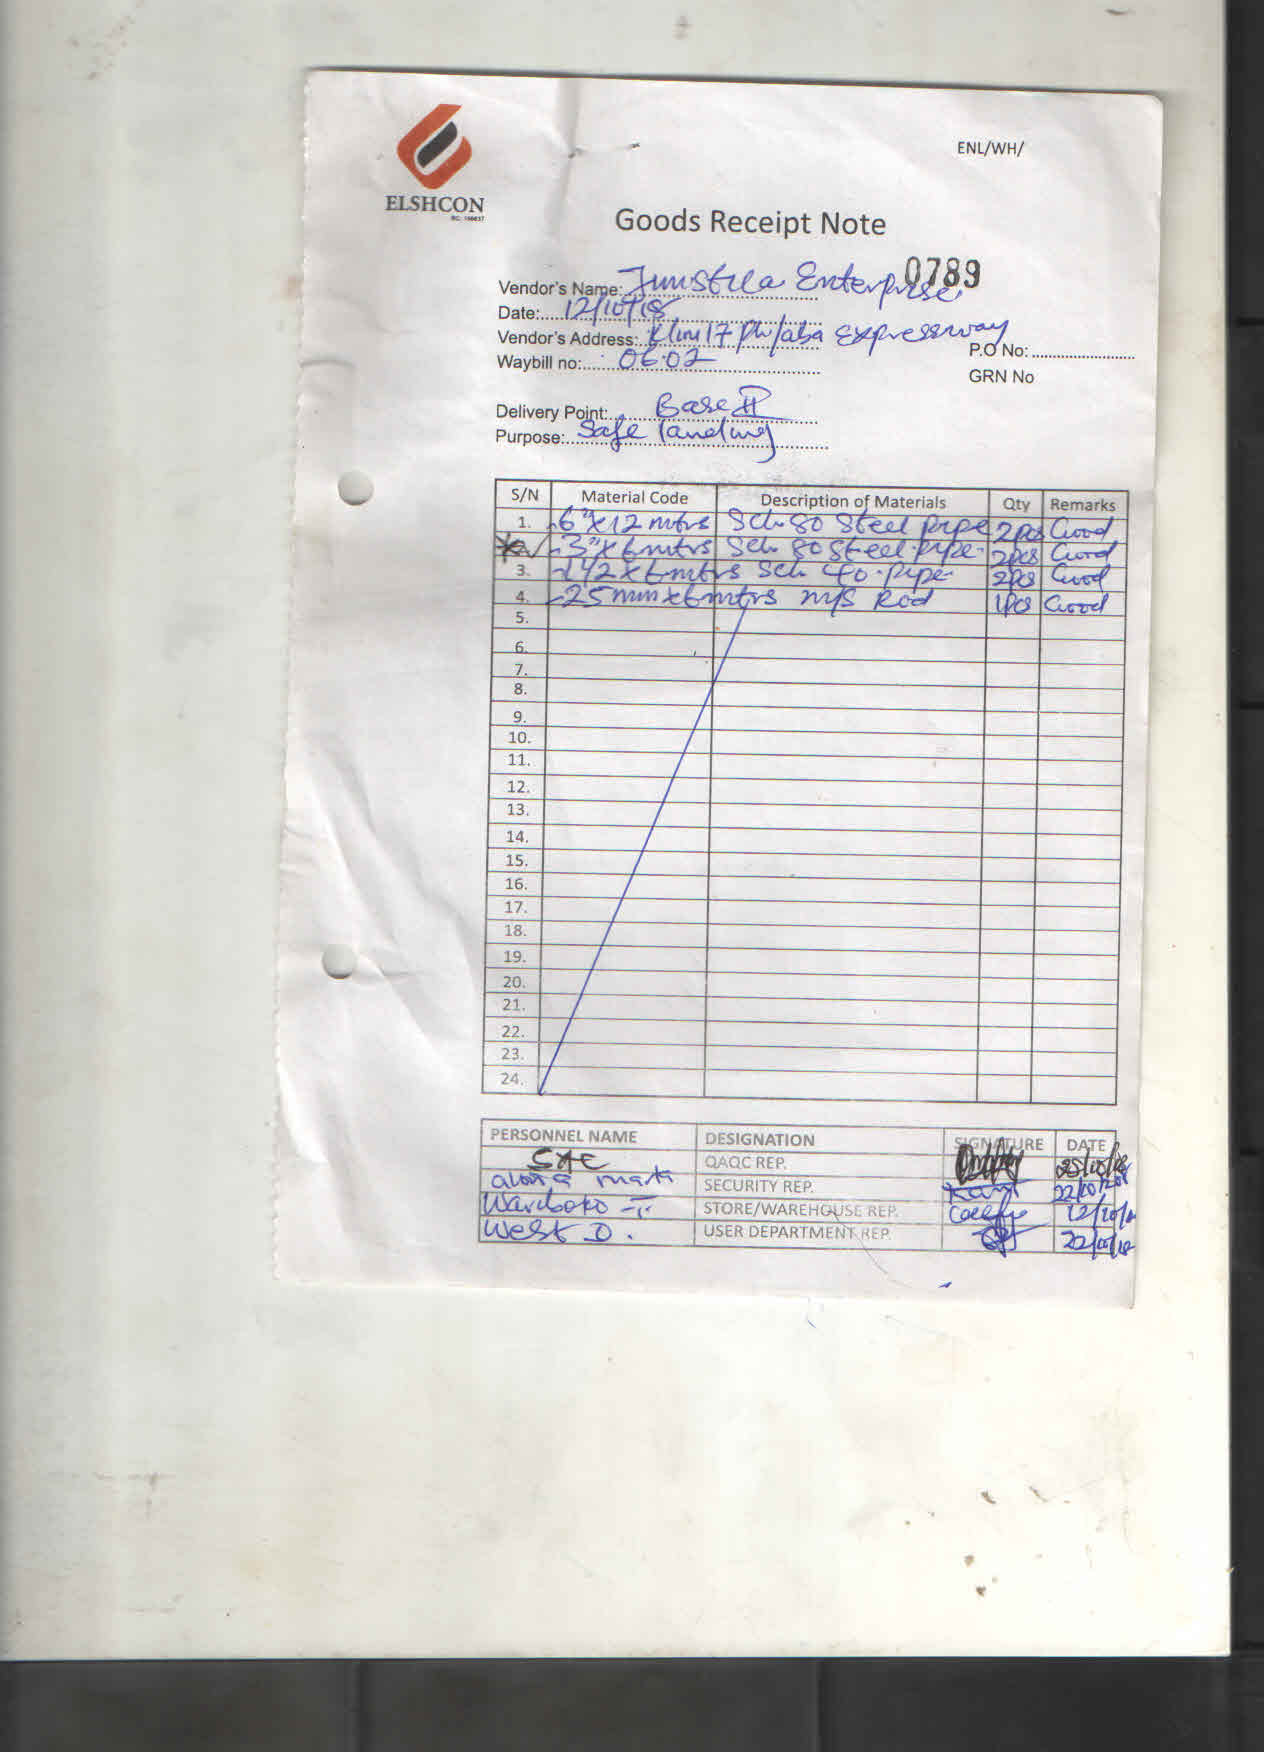 ELSHCON
RC: 166637
ENL/WH/
Goods Receipt Note
0789
Vendor's Name: Enterprise
Date: 12/10/18
Vendor's Address: Klm 17 PH/aba expressway
P.O No:
Waybill no: 0602
GRN No
Delivery Point: Base II
Purpose: Safe landing
S/N Material Code Description of Materials Qty Remarks
1. 6" x 12 mtrs Sch 80 Steel pipe 2pcs Good
3" x 6mtrs Sch 80 Steel pipe 2pcs Good
3. x 6mtrs Sch 40 pipe 2pcs Good
4. 25mm x 6mtrs m/s Rod 1pcs Good
5.
6.
7.
8.
9.
10.
11.
12.
13.
14.
15.
16.
17.
18.
19.
20.
21.
22.
23.
24.
PERSONNEL NAME DESIGNATION SIGNATURE DATE
QAQC REP. 25/10/18
SECURITY REP. 22/10/2018
Wariboko T. STORE/WAREHOUSE REP. 12/10/18
West D. USER DEPARTMENT REP. 22/10/18